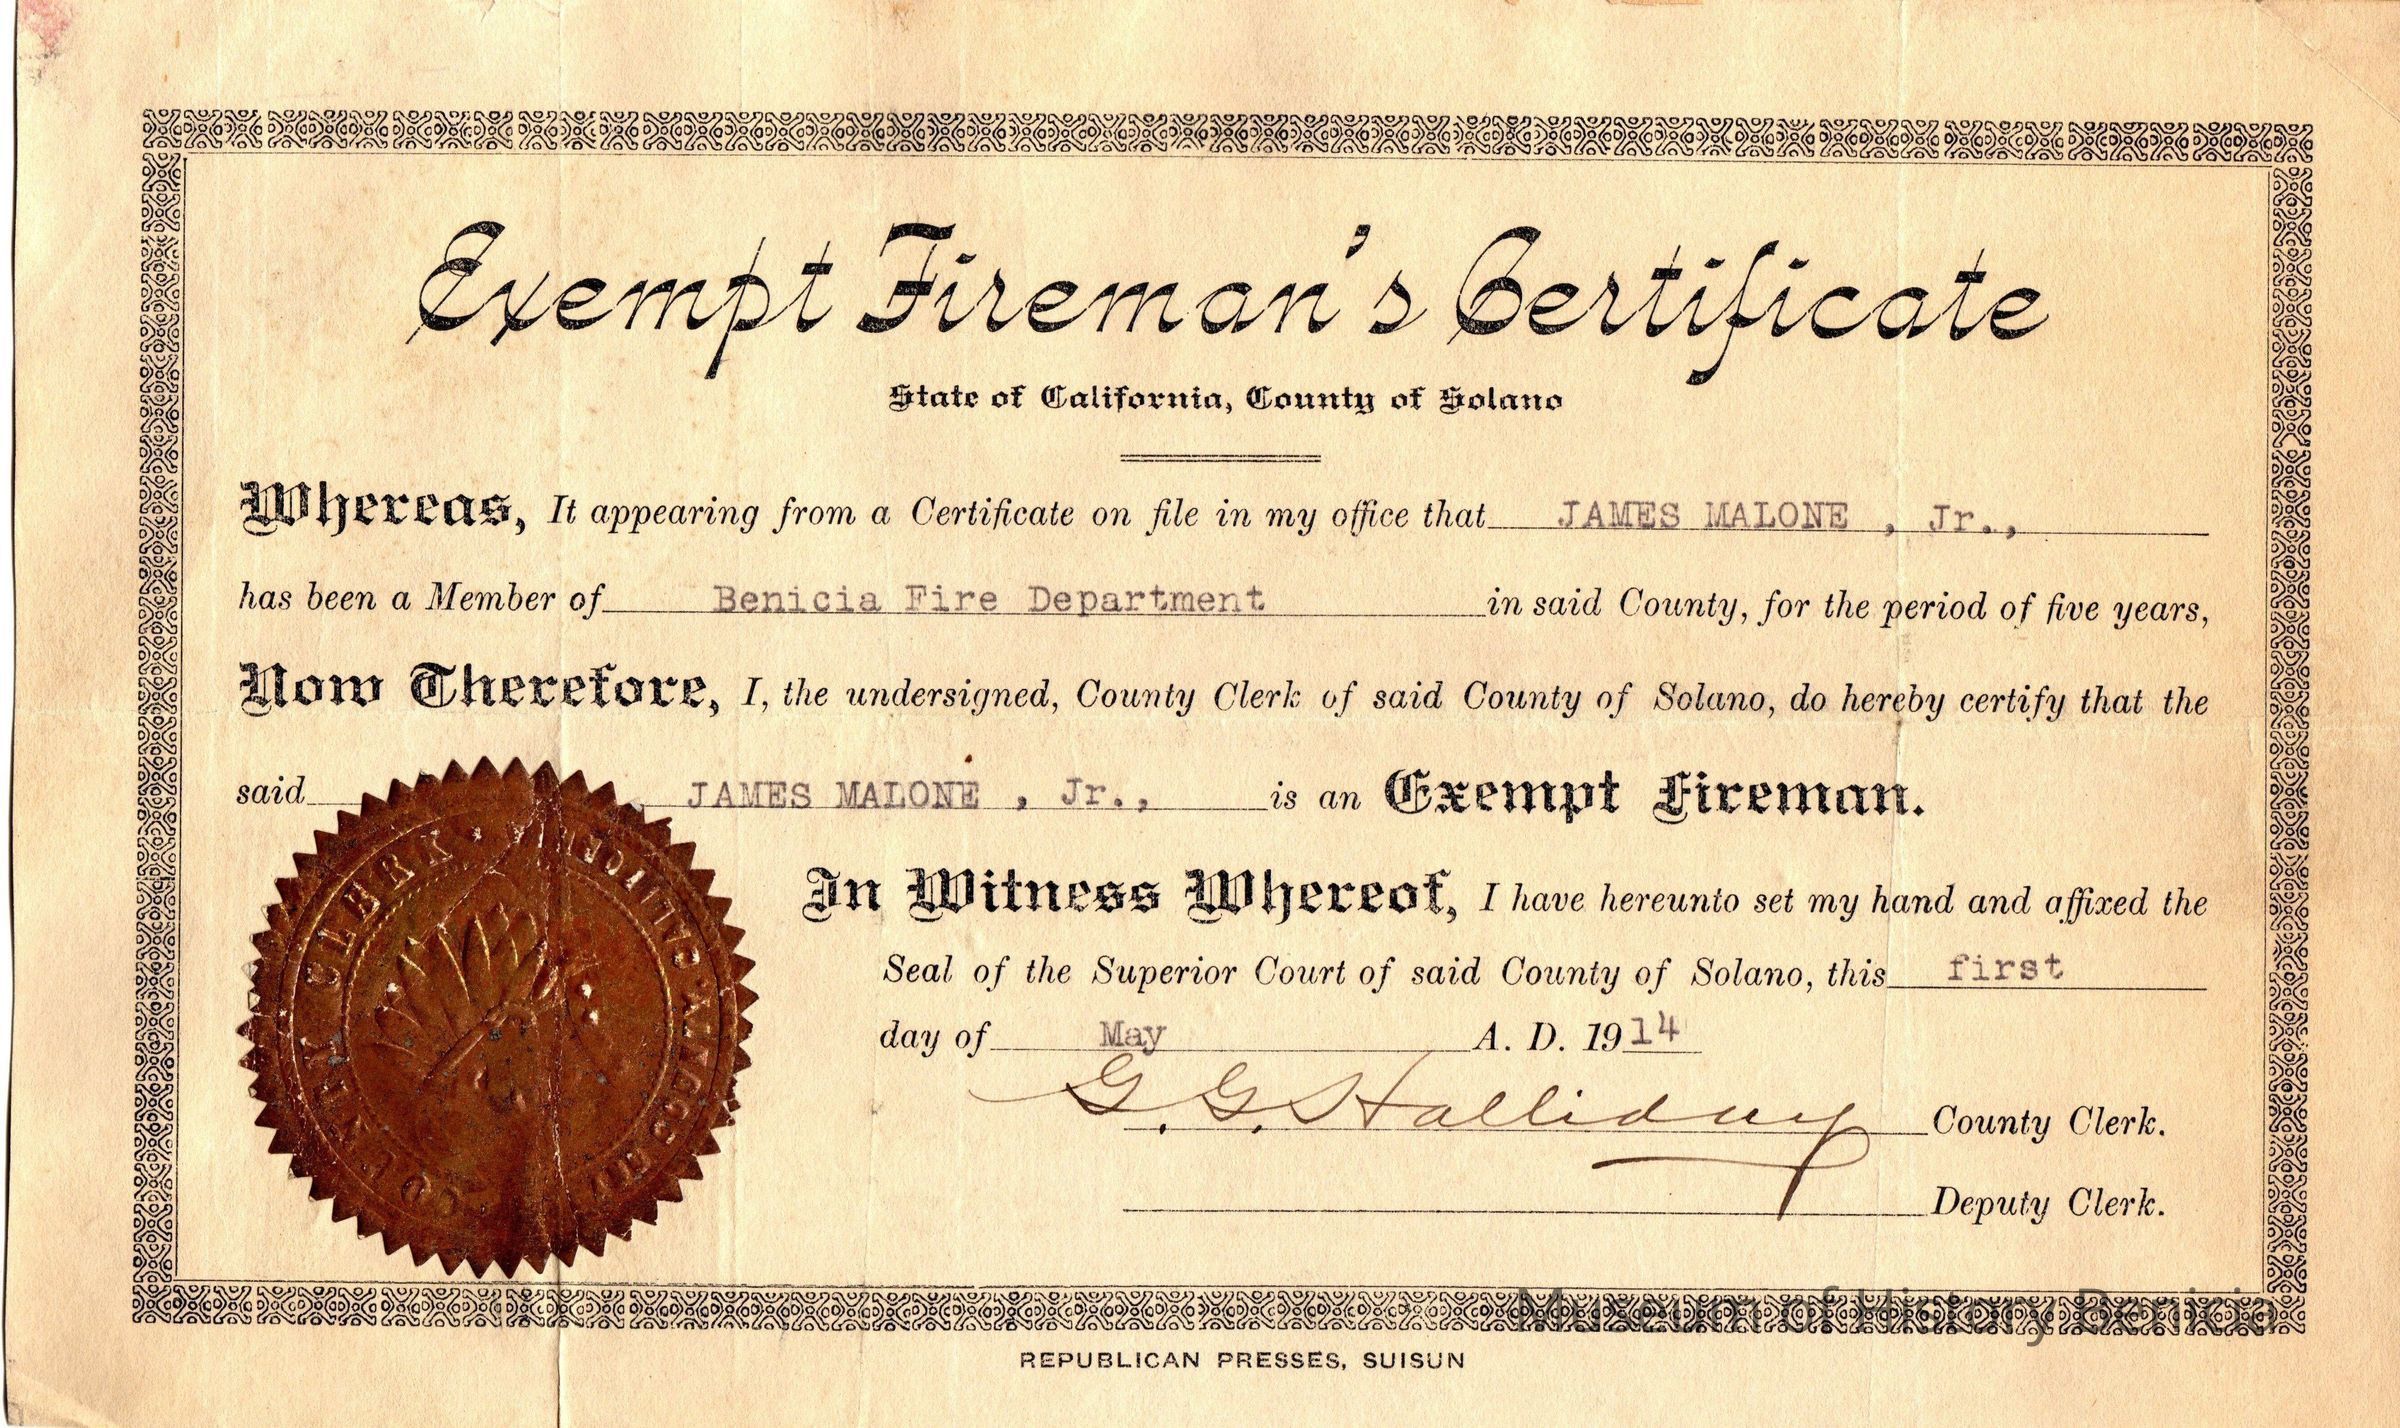 Exempt Fireman's Certificate
State of California, County of Solano
Whereas, It appearing from a Certificate on file in my office that JAMES MALONE , Jr.,
has been a Member of Benicia Fire Department in said County, for the period of five years,
Now Therefore, I, the undersigned, County Clerk of said County of Solano, do hereby certify that the
said JAMES MALONE , Jr., is an Exempt Fireman.
In Witness Whereof, I have hereunto set my hand and affixed the
Seal of the Superior Court of said County of Solano, this first
day of May A. D. 1914
G. G. Halliday County Clerk.
Deputy Clerk.
COUNTY CLERK
Museum of History Benicia
REPUBLICAN PRESSES, SUISUN